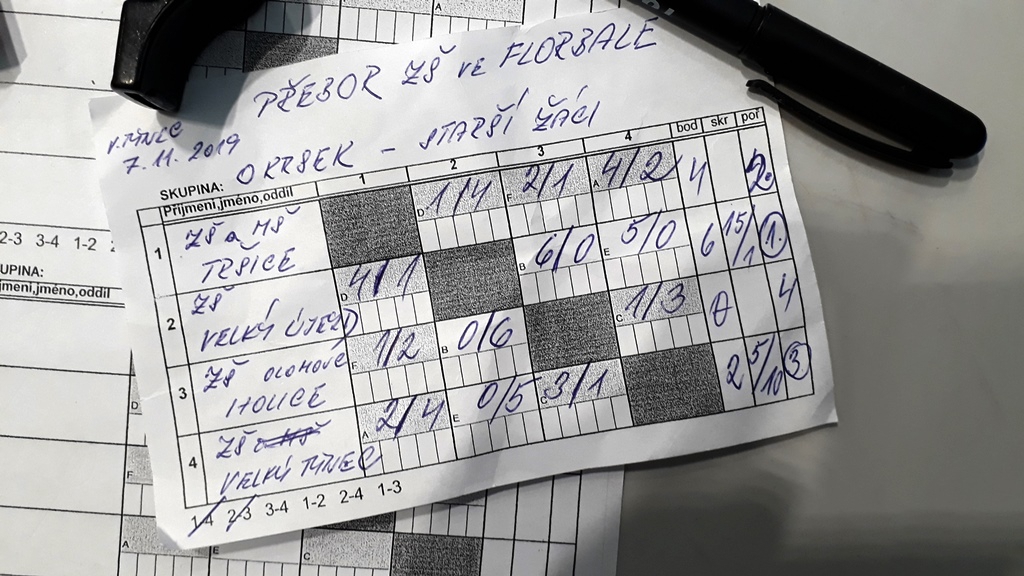 PŘEBOR ZŠ ve FLORBALE
V. TÝNEC
7.11. 2019
OKRSEK - STARŠÍ ŽÁCI
SKUPINA:
Příjmení,jméno,oddíl 1 2 3 4 bod skr poř
1 ZŠ a MŠ TRŠICE D 1/4 F 2/1 A 4/2 4 2.
2 ZŠ VELKÝ ÚJEZD D 4/1 B 6/0 E 5/0 6 15/1 1.
3 ZŠ OLOMOUC HOLICE F 1/2 B 0/6 C 1/3 0 4
4 ZŠ VELKÝ TÝNEC A 2/4 E 0/5 C 3/1 2 5/10 3
1-4 2-3 3-4 1-2 2-4 1-3
2-3 3-4 1-2
UPINA:
jmení,jméno,oddíl
D
F
A E C
A